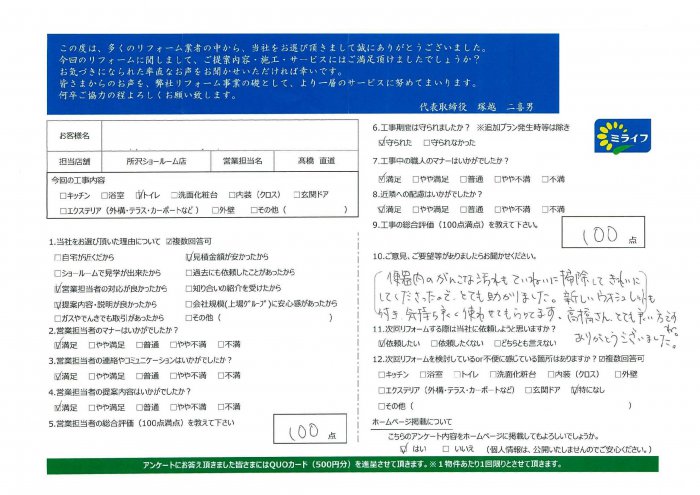 この度は、多くのリフォーム業者の中から、当社をお選び頂きまして誠にありがとうございました。
今回のリフォームに関しまして、ご提案内容・施工・サービスにはご満足頂けましたでしょうか？
お気づきになられた率直なお声をお聞かせいただければ幸いです。
皆さまからのお声を、弊社リフォーム事業の礎として、より一層のサービスに努めてまいります。
何卒ご協力の程よろしくお願い致します。
代表取締役 塚越 二喜男
ミライフ
お客様名
担当店舗 所沢ショールーム店 営業担当名 髙橋 直道
今回の工事内容
□キッチン □浴室 ☑トイレ □洗面化粧台 □内装（クロス） □玄関ドア
□エクステリア（外構・テラス・カーポートなど） □外壁 □その他（ ）
1.当社をお選び頂いた理由について ☑複数回答可
□自宅が近くだから ☑見積金額が安かったから
□ショールームで見学が出来たから □過去にも依頼したことがあったから
☑営業担当者の対応が良かったから □知り合いの紹介を受けたから
☑提案内容・説明が良かったから □会社規模(上場グループ)に安心感があったから
□ガスやでんきでも取引があったから □その他（ ）
2.営業担当者のマナーはいかがでしたか？
☑満足 □やや満足 □普通 □やや不満 □不満
3.営業担当者の連絡やコミュニケーションはいかがでしたか？
☑満足 □やや満足 □普通 □やや不満 □不満
4.営業担当者の提案内容はいかがでしたか？
☑満足 □やや満足 □普通 □やや不満 □不満
5.営業担当者の総合評価（100点満点）を教えて下さい
100 点
6.工事期間は守られましたか？ ※追加プラン発生時等は除き
☑守られた □守られなかった
7.工事中の職人のマナーはいかがでしたか？
☑満足 □やや満足 □普通 □やや不満 □不満
8.近隣への配慮はいかがでしたか？
☑満足 □やや満足 □普通 □やや不満 □不満
9.工事の総合評価（100点満点）を教えて下さい。
100 点
10.ご意見、ご要望等がありましたらお聞かせください。
便器内のがんこな汚れもていねいに掃除してきれいに
してくださったので、とても助かりました。新しいウォシュレットも
付き気持ち良く使わせてもらってます。高橋さん、とても良い方ですね。
ありがとうございました。
11.次回リフォームする際は当社に依頼しようと思いますか？
☑依頼したい □依頼したくない □どちらとも言えない
12.次回リフォームを検討しているor不便に感じている箇所はありますか？☑複数回答可
□キッチン □浴室 □トイレ □洗面化粧台 □内装（クロス） □外壁
□エクステリア（外構・テラス・カーポートなど） □玄関ドア ☑特になし
□その他（ ）
ホームページ掲載について
こちらのアンケート内容をホームページに掲載してもよろしいでしょうか。
☑はい □いいえ （個人情報は、公開いたしませんのでご安心ください。）
アンケートにお答え頂きました皆さまにはQUOカード（500円分）を進呈させて頂きます。※１物件あたり1回限りとさせて頂きます。